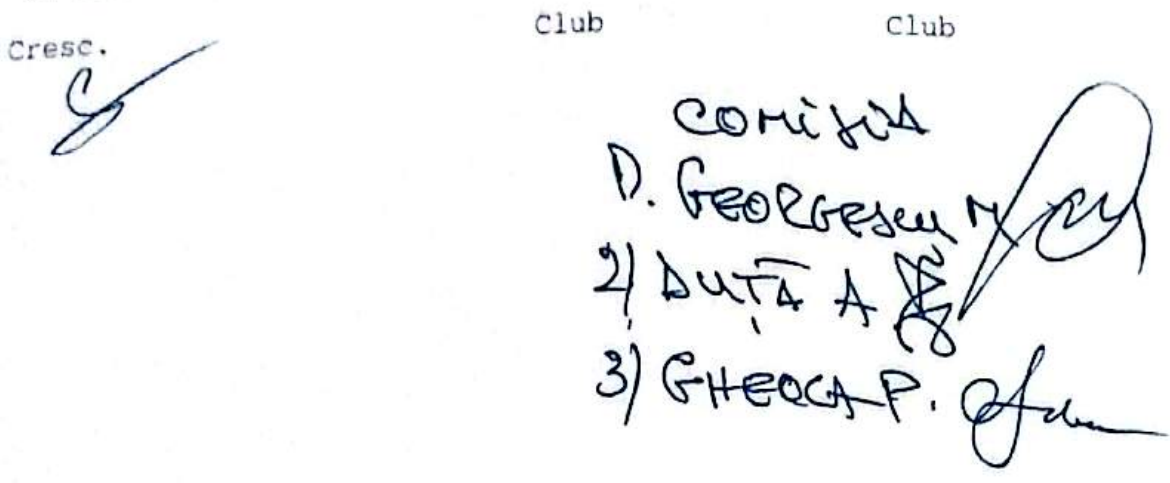 Club Club
Cresc.
COMISIA
D. GEORGESCU M
2) DUȚĂ A
3) GHEOCA P.